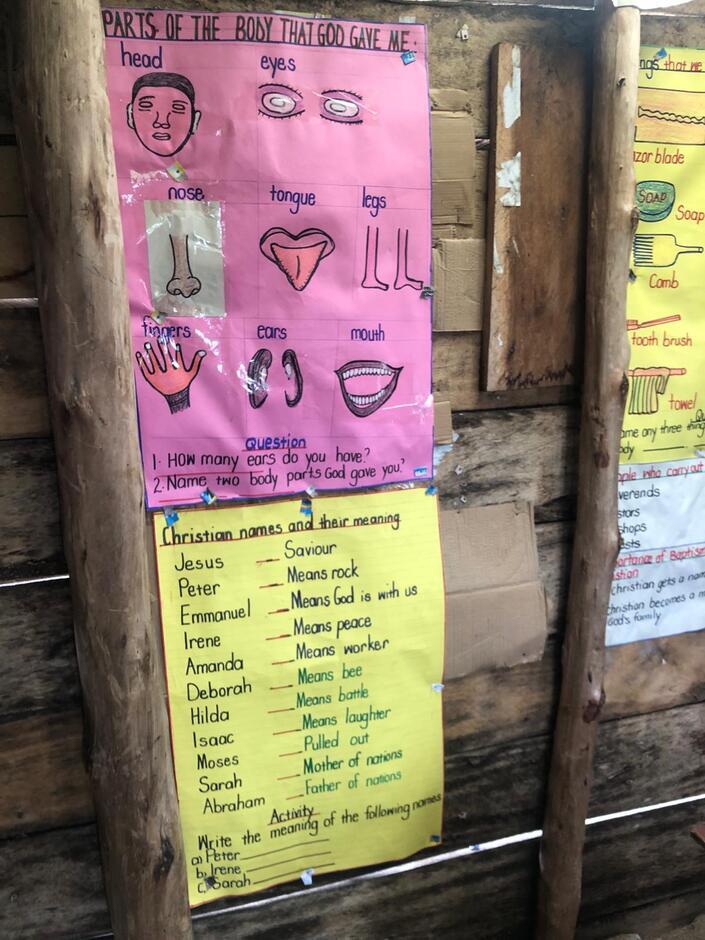 PARTS OF THE BODY THAT GOD GAVE ME.
head eyes
nose tongue legs
fingers ears mouth
Question
1. How many ears do you have?
2. Name two body parts God gave you?
Christian names and their meaning
Jesus — Saviour
Peter — Means rock
Emmanuel — Means God is with us
Irene — Means peace
Amanda — Means worker
Deborah — Means bee
Hilda — Means battle
Isaac — Means laughter
Moses — Pulled out
Sarah — Mother of nations
Abraham — Father of nations
Activity
Write the meaning of the following names
a) Peter
b) Irene
c) Sarah
ngs that we
zor blade
SOAP
Soap
Comb
tooth brush
towel
Qu
ame any three thing
ody
ople who carry out
verends
stors
shops
ests
portance of Baptism
stian
christian gets a nam
christian becomes a m
God's family